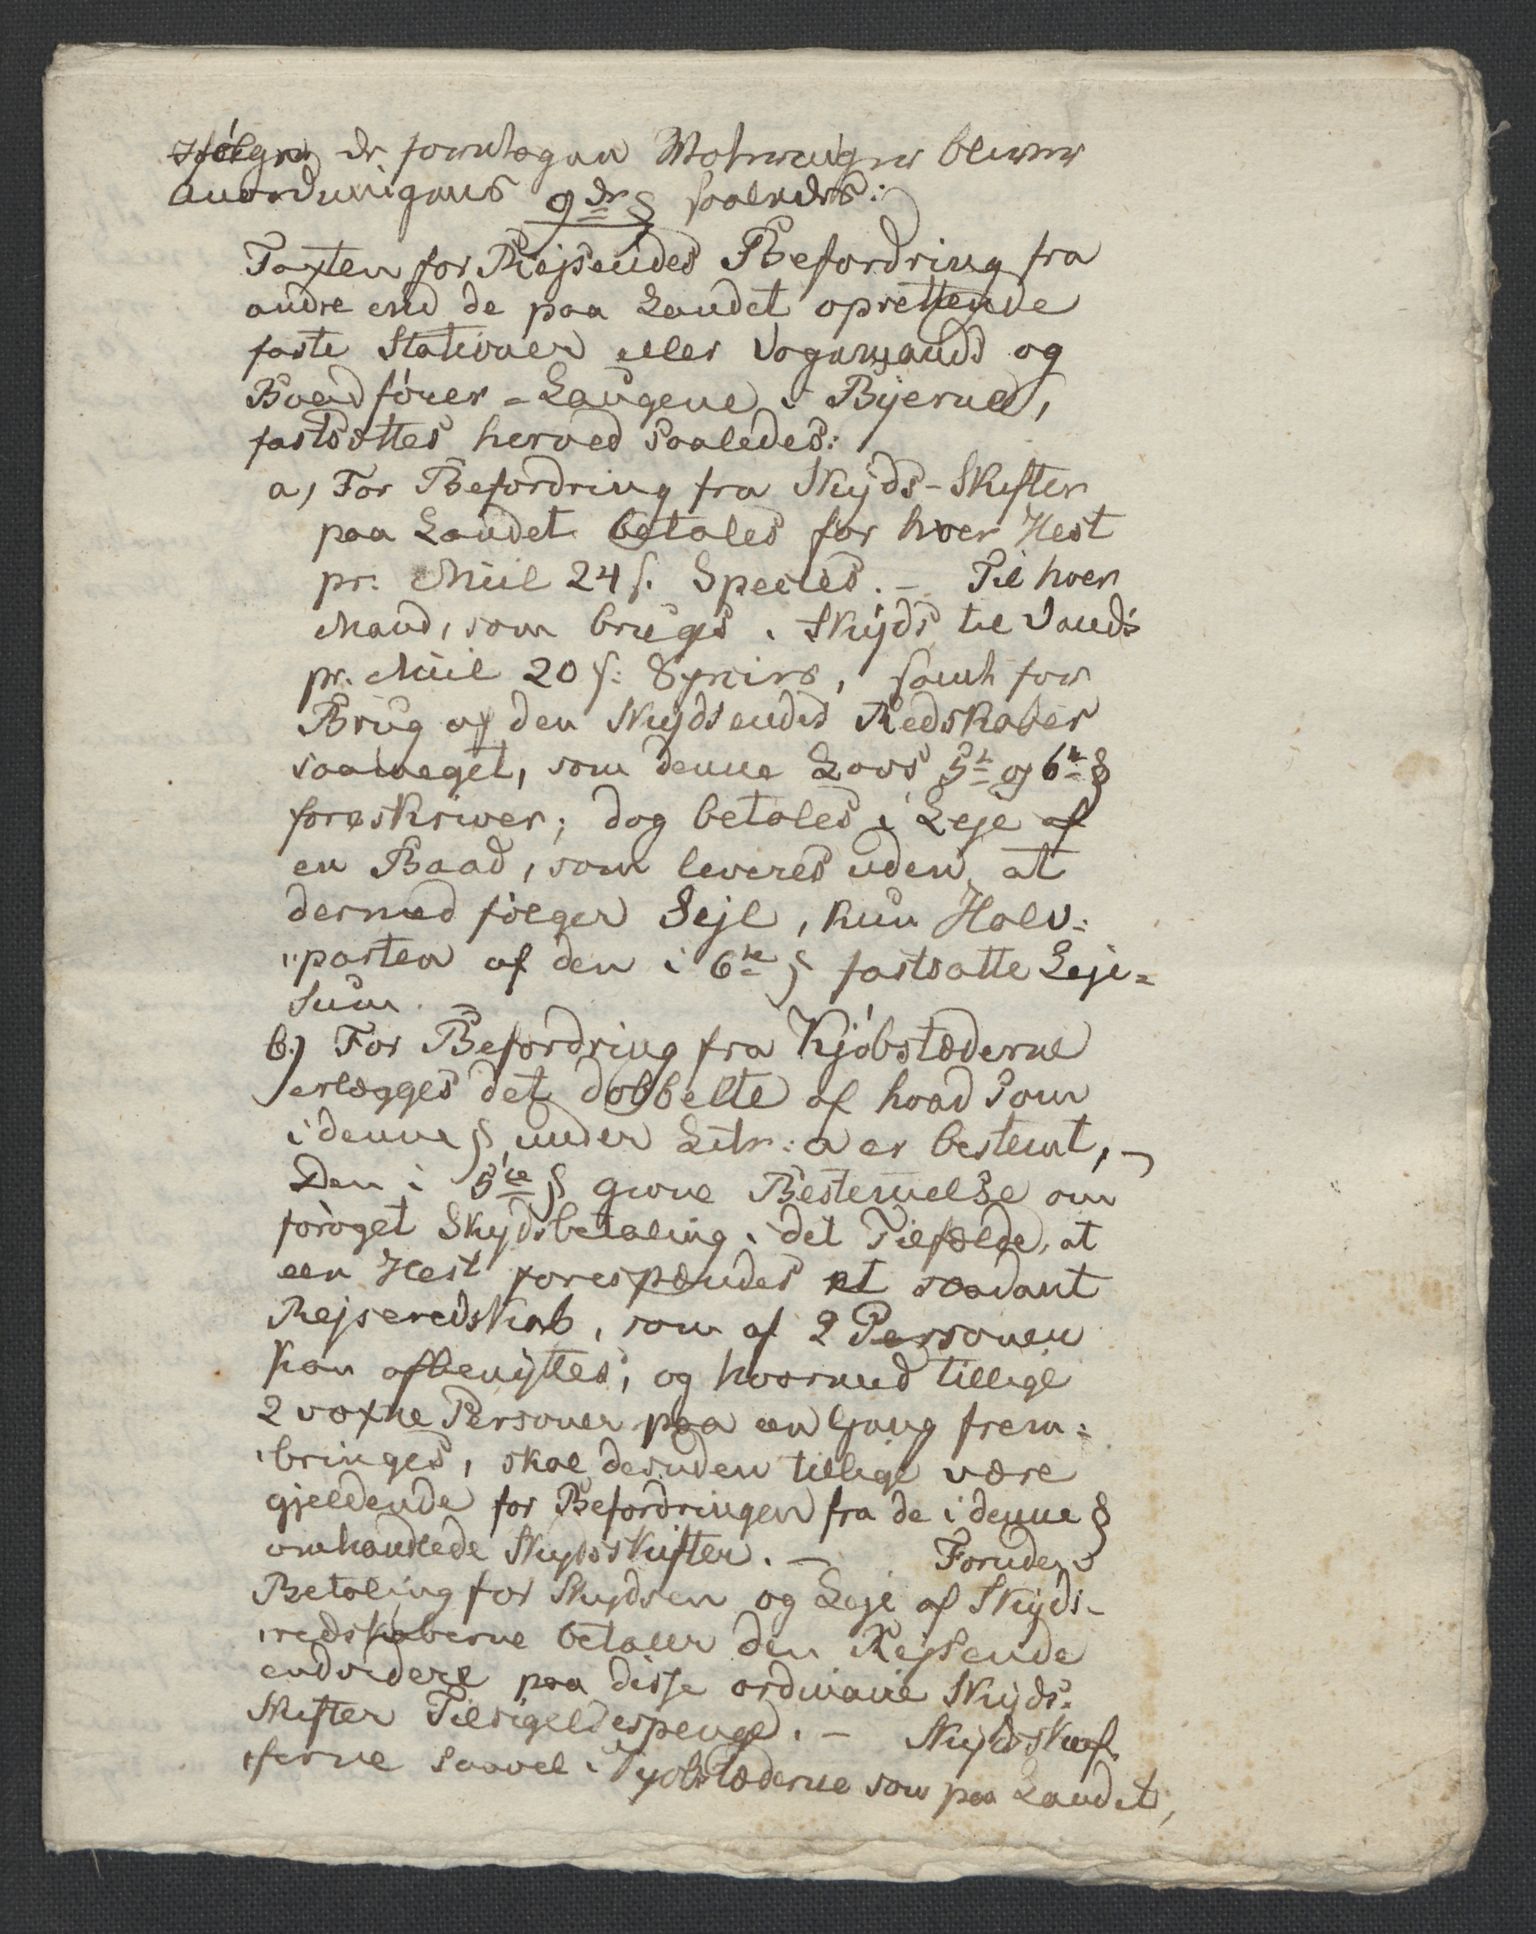 Ifølge de foretagne Voteringer bliver
Anordningens 9de § saaledes:
Taxten for Rejsendes Befordring fra
andre end de paa Landet oprettende
faste Stationer eller Vognmands og
Baadfører-Laugene i Byerne,
fastsættes herved saaledes:
a, For Befordring fra Skyds-Skifter
paa Landet betales for hver Hest
pr. Miil 24 s. Species. – Til hver
Mand, som bruges i Skyds til Vands
pr. Miil 20 s: Species, samt for
Brug af den Skydsendes Redskaber
saameget, som denne Lovs 5te og 6te §
foreskriver; dog betales i Leje af
en Baad, som leveres uden at
dermed følger Sejl, kun Halv=
"parten af den i 6te § fastsatte Leje=
Sum. –
b.) For Befordring fra Kjøbstæderne
erlægges det dobbelte af hvad Som
i denne § under Litr: a er bestemt, –
Den i 5te § givne Bestemmelse om
forøget Skydsbetaling i det Tilfælde, at
een Hest forespændes et saadant
Rejseredskab, som af 2 Personer
kan afbenyttes, og hvormed tillige
2 voxne Personer paa een Gang frem=
bringes, skal desuden tillige være
gjeldende for Befordringen fra de i denne §
omhandlede Skydsskifter. – Foruden
Betaling for Skydsen og Leje af Skyds-
redskaberne betaler den Rejsende
endvidere paa disse ordinaire Skyds=
Skifter Tilsigelsespenge. – Skydsskif=
terne saavel i Kjøbstæderne som paa Landet,